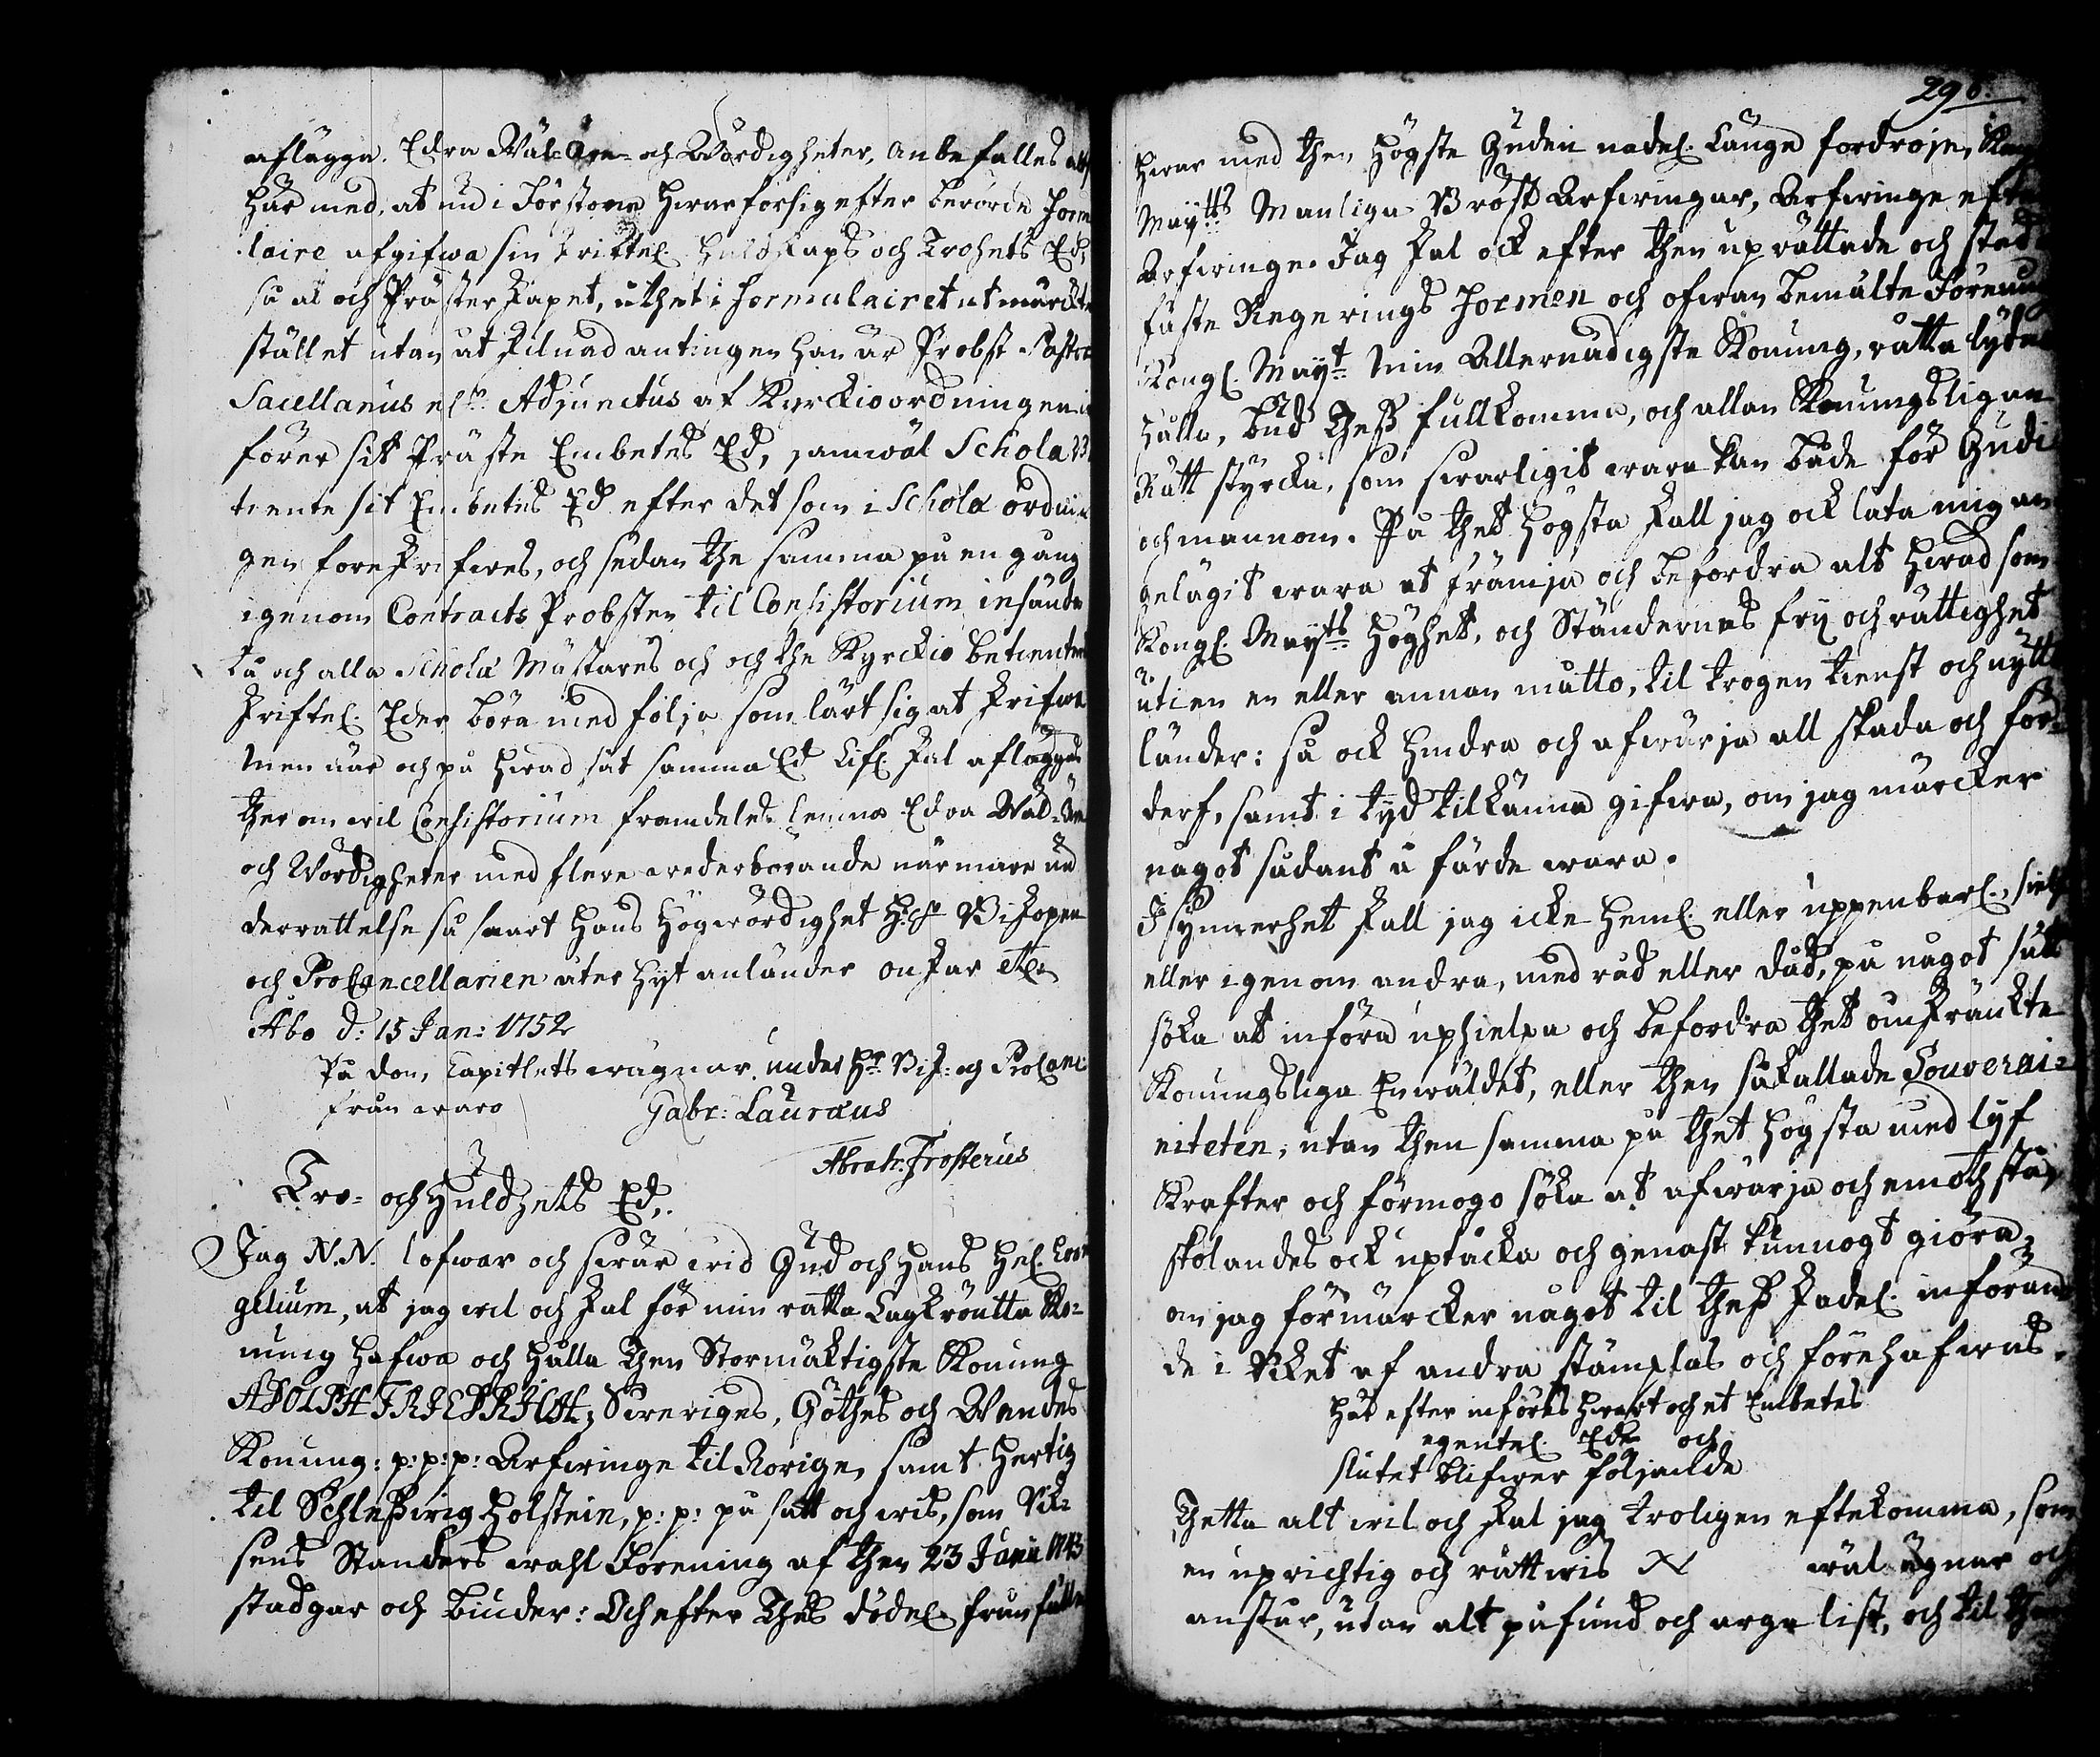 aflägga. Edra Wäl-Äre- och Wördigheter, anbefalles altså
här med, at nu i Förstone hwar för sig efter berörde Formu
laire afgifwa sin skriftel. Huldskaps och Trohets Ed,
så at och Prästerskapet, uthet i Formulairet utmärckte
stället utan åtskilnad antingen han är Probst Pastor
Sacellanus elr Adjunctus af Kyrckioordningen in
förer sit Präste Embetes Ed, samwäl Scholæ Be
tiente sit Embetes Ed efter det som i Scholæ ordnin
gen föreskrifwes, och sedan the samma på en gång
igenom Contracts Probsten til Consistorium insände
då och alla Scholæ Mästares och och the Kyrckio betientes
skriftel. Eder böra med följa som lärt sig at skrifwa
Men när och på hwad sät samma Ed lifl. skal afläggas
ther om wil Consistorium framdeles lemna Edra Wäl-Äre
och Wördigheter med flere wederbörande närmare un
derrättelse så snart Hans Högwördighet H:r Biskopen
och ProCancellarien åter hyt anländer önskar etc.
Åbo d: 15 Jan: 1752
På Dom Capitlets wägnar, under Hr Bis: och ProCanc
från waro Gabr: Lauræus
Abrah: Frosterus
Tro- och Huldhets Ed.
Jag N.N. lofwar och swär wid Gud och Hans Hel. Evan
gelium, at jag wil och skal för min rätta Lagkrönta Ko-
nung hafwa och hålla then Stormäktigste Konung
ADOLPH FRIEDRICH, Sweriges, Göthes och Wendes
Konung: p: p: p: Arfwinge til Norige, samt Hertig
til Schleßwig Holstein, p: p: på sätt och wis, som Rik-
sens Ständers wahl Förening af then 23 Junii 1743
stadgar och binder: Och efter Thes dödel. frånfälle
296.
hwar med then Högste Guden nådel. länge fördröje, Kongl.
Maytts Manliga Bröst Arfwingar, Arfwinge efter
Arfwinge. Jag skal ock efter then uprättade och stad
fäste Regerings Formen och ofwan bemälte Förening
Kongl. Mayt Min Allernådigste Konung, rätta lydno
hålla, bud Theß fullkomma, och allan Konungsligan
Rätt styrcka, som swarligit wara kan både för Gudi
och mannom. På thet högsta skall jag ock låta mig an
gelägit wara at främja och befordra alt hwad som
Kongl. Mayts Höghet, och Ständernes frij och rättighet
uti en en eller annan måtto, til trogen tienst och nytto
länder: så ock hindra och afwärja all skada och för-
derf, samt i tyd tilkänna gifwa, om jag märcker
något sådant å färde wara.
I synnerhet skall jag icke heml. eller uppenbarl. sielf
eller igenom andra, med råd eller dåd, på något sätt
söka at införa uphielpa och befordra thet oinskränkte
Konungsliga Enwäldet, eller then såkallade Souverai-
niteten, utan then samma på thet högsta med lyf
krafter och förmogo söka at afwärja och emoth stå,
skolandes ock uptäcka och genast kunnogt giöra,
om jag förmärcker något til theß skadel. införan
de i Riket af andra stämplas och förehafwas.
Här efter införes hwart och et Embetes
egentel. Ed och
slutet blifwer föliande
Thetta alt wil och skal jag troligen efterkomma, som
en uprichtig och rättwis N wäl ägnar och
anstår, utan alt påfund och arga list, och til then